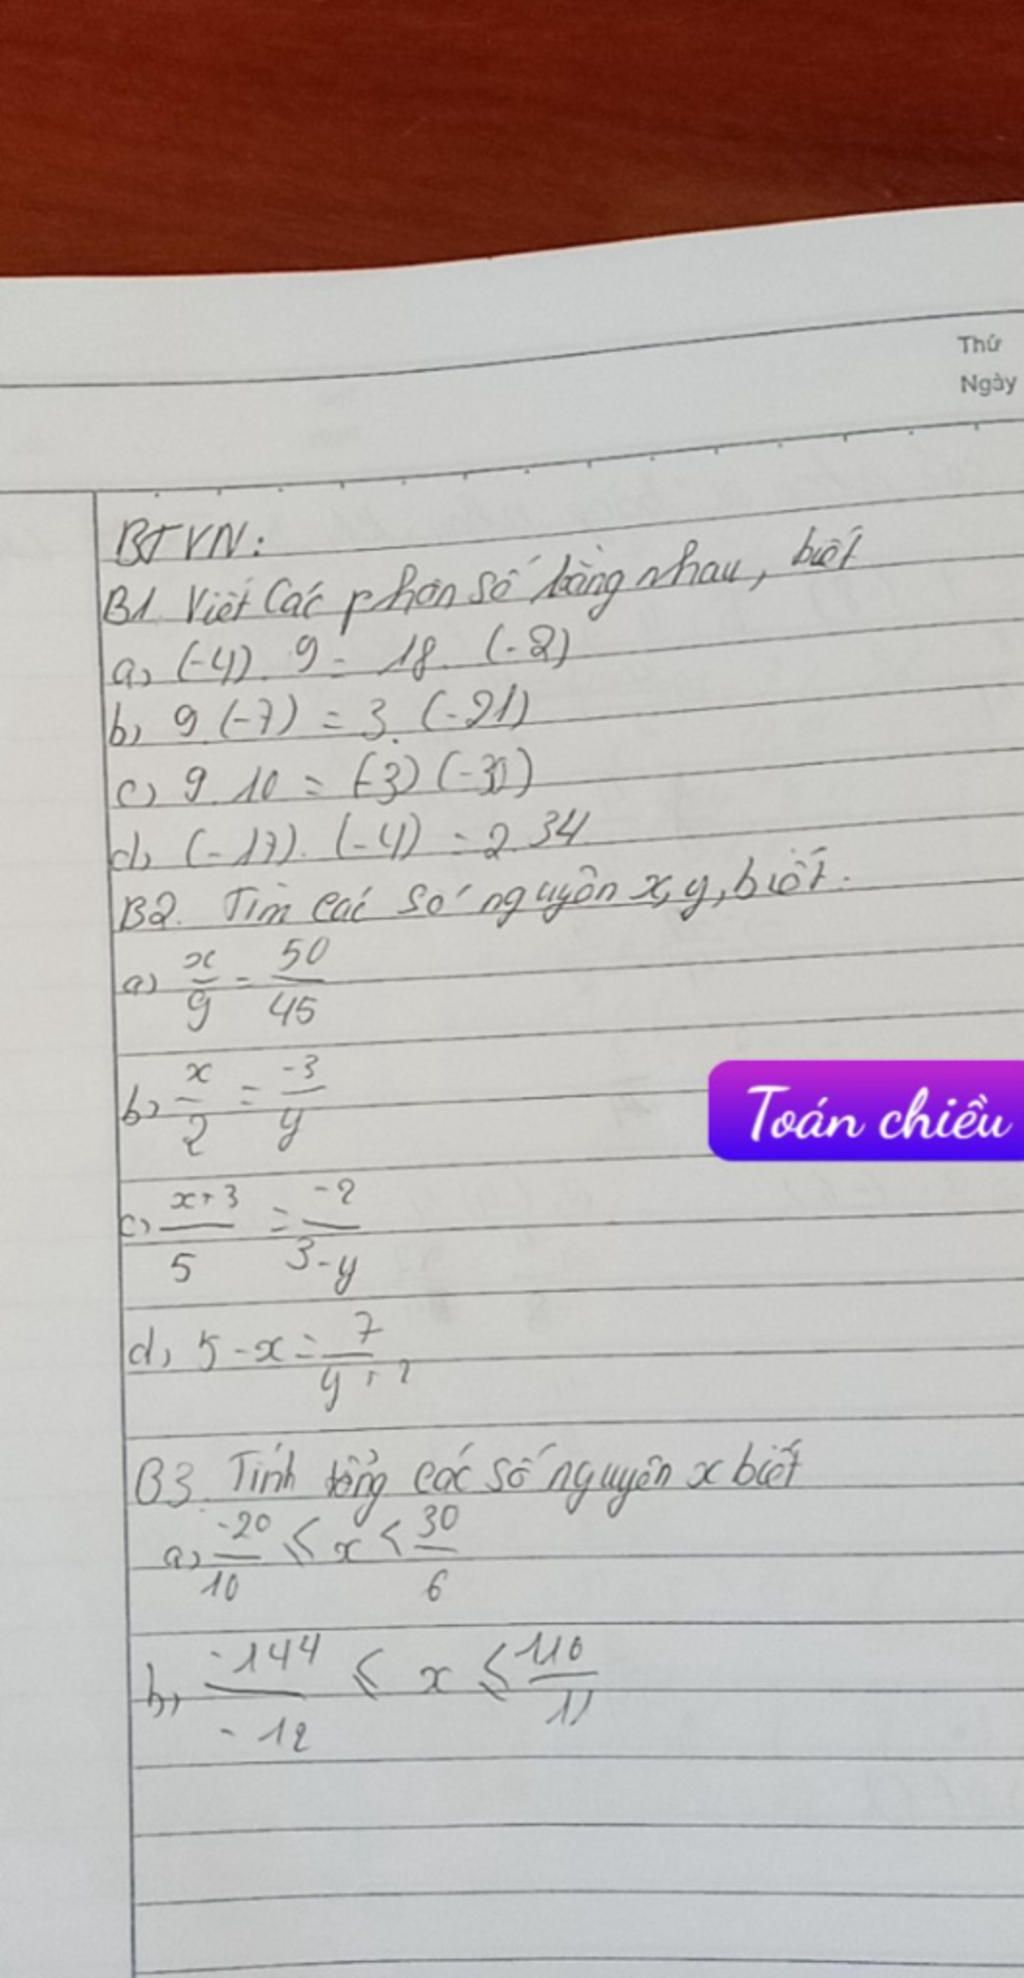 Thứ
Ngày
BTVN:
B1. Viết Các phân số bằng nhau, biết
a, (-4). 9 = 18. (-2)
b, 9.(-7) = 3. (-21)
c, 9.10 = (-3)(-30)
d, (-17). (-4) = 2.34
B2. Tìm các số nguyên x,y, biết:
a) x/9 = 50/45
b) x/2 = -3/y
Toán chiều
c) x+3/5 = -2/3-y
d, 5-x = 7/y+2
B3. Tính tổng các số nguyên x biết
a, -20/10 ≤ x < 30/6
b, -144/-12 ≤ x ≤ -110/11